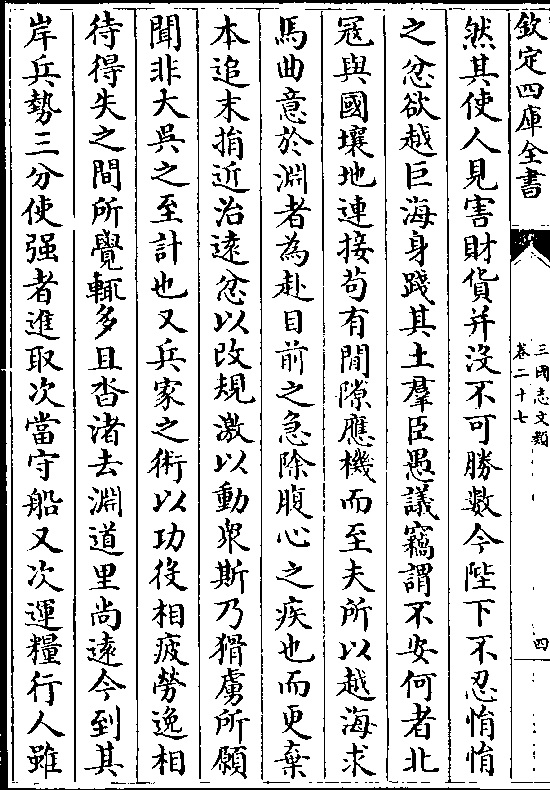 欽定四庫全書
三國志文類
卷二十七
四
然其使人見害財貨并沒不可勝數今陛下不忍悁悁
之忿欲越巨海身踐其土羣臣愚議竊謂不安何者北
冦與國壤地連接茍有間隙應機而至夫所以越海求
馬曲意於淵者為赴目前之急除腹心之疾也而更棄
本追末捐近治遠忿以改規激以動衆斯乃猾虜所願
聞非大吳之至計也又兵家之術以功役相疲勞逸相
待得失之間所覺輒多且沓渚去淵道里尚遠今到其
岸兵勢三分使强者進取次當守船又次運糧行人雖